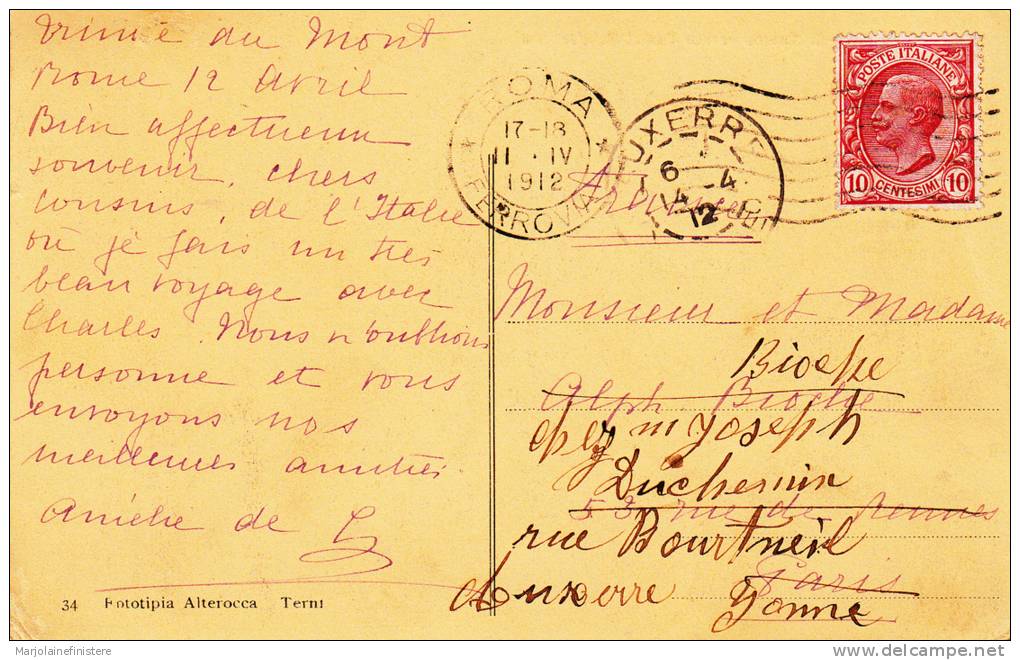 Trinité du Mont
Rome 12 Avril
Bien affectueux
souvenir, chers
Cousins, de l'Italie
où je fais un très
beau voyage avec
Charles. Nous n'oublions
personne et vous
envoyons nos
meilleures amitiés.
de
34 Fototipia Alterocca Terni
ROMA
17-18
11 · IV
1912
FERROVIA
AUXERRE
6
14 - 4
12
POSTE ITALIANE
10 CENTESIMI 10
Monsieur et Madame
Bioche
Alph Bioche
chez m Joseph
Duchemin
53 rue de Rennes
rue Bourtneil
Paris
Auxerre Yonne
Marjolainefinistere
www.delcampe.net